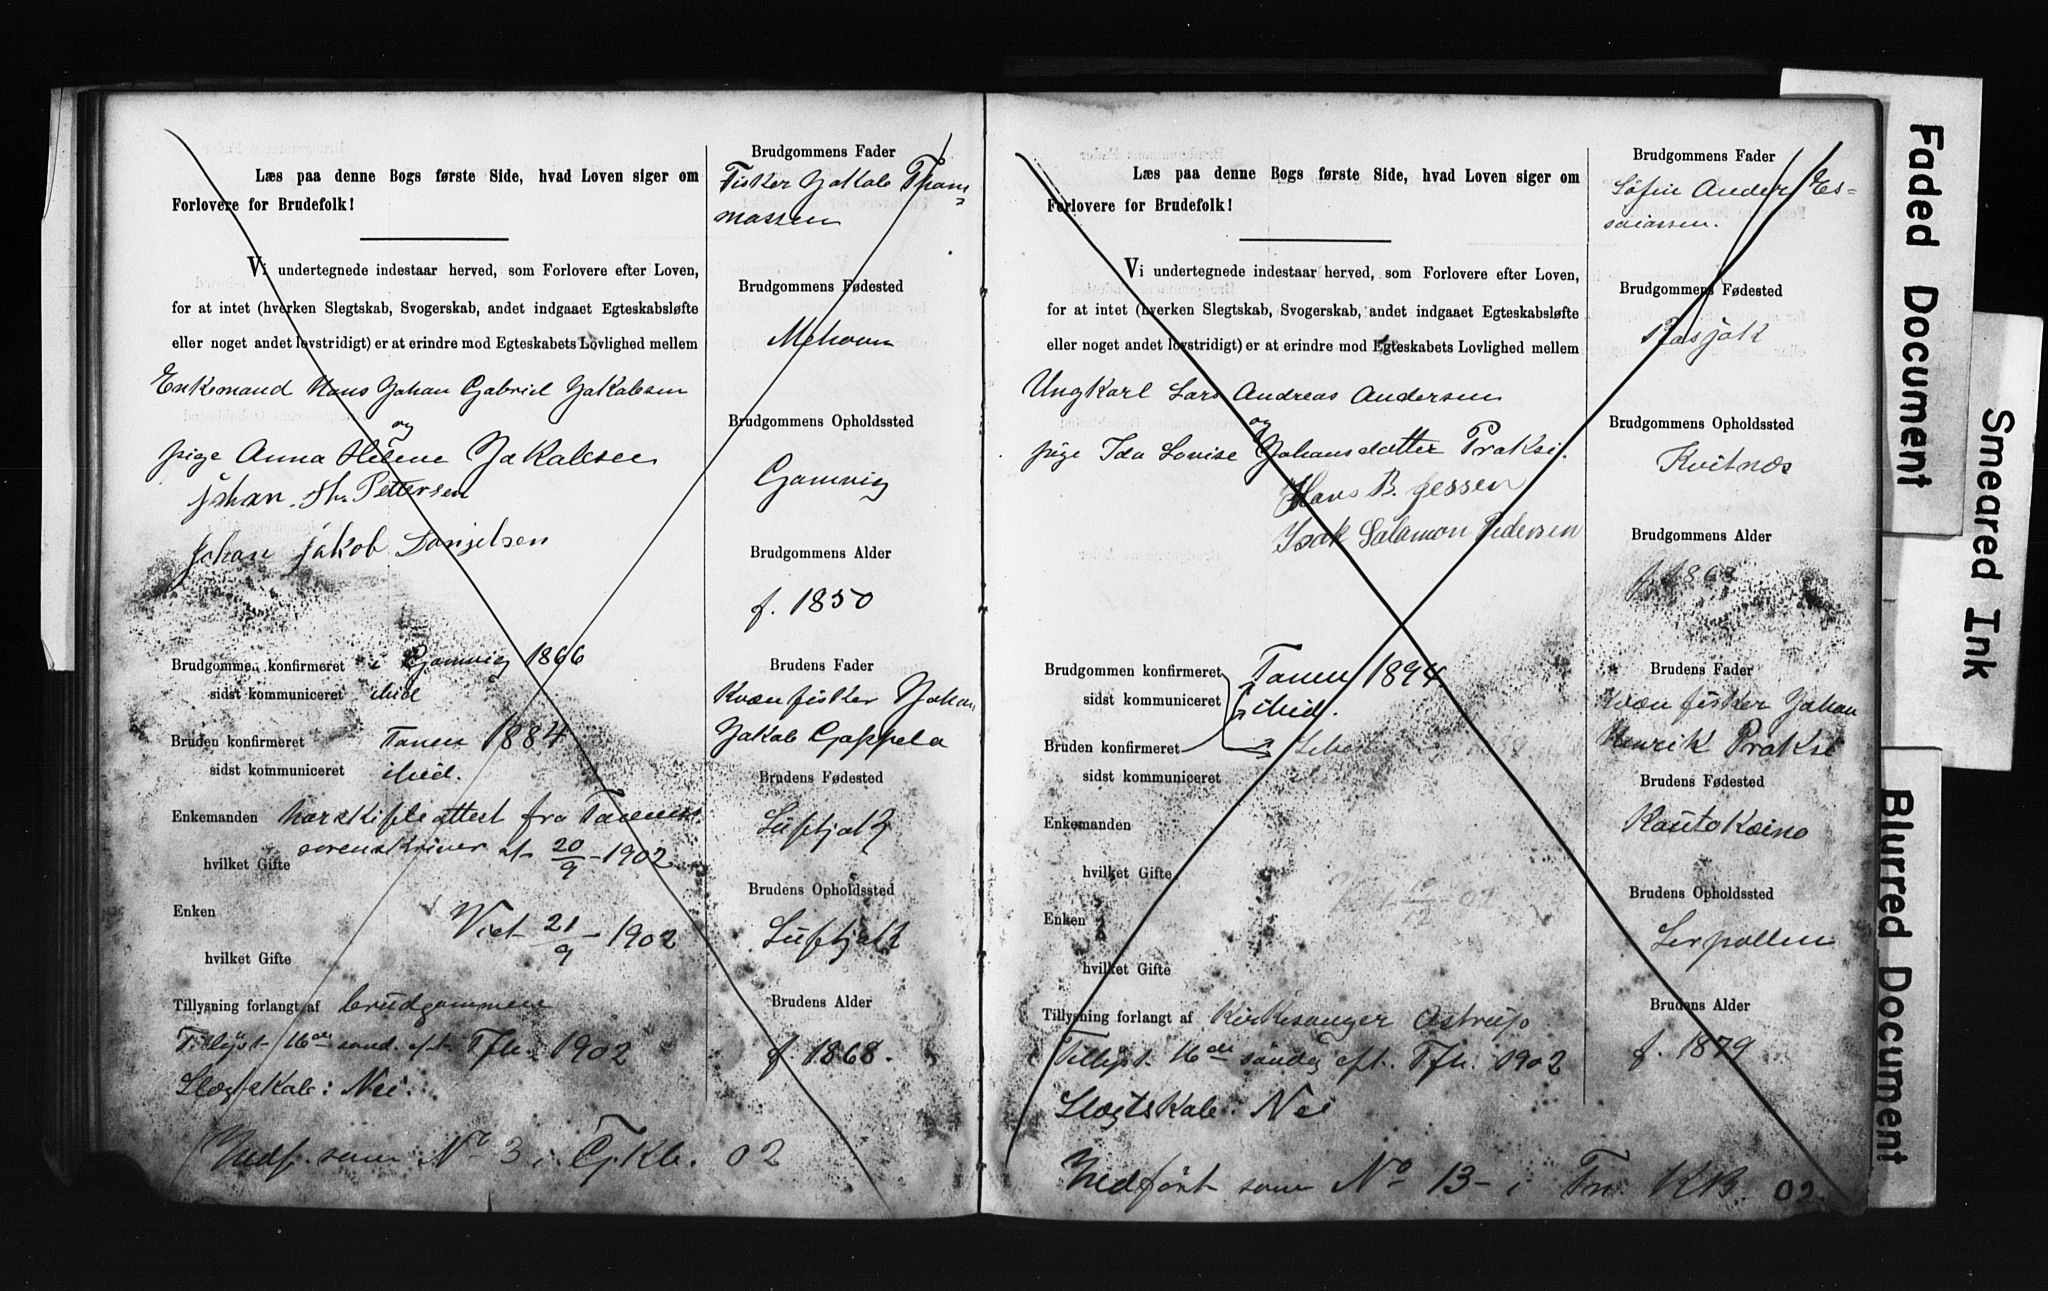 Læs paa denne Bogs første Side, hvad Loven siger om
Forlovere for Brudefolk!
Vi undertegnede indestaar herved, som Forlovere efter Loven,
for at intet (hverken Slegtskab, Svogerskab, andet indgaaet Egteskabsløfte
eller noget andet lovstridigt) er at erindre mod Egteskabets Lovlighed mellem
Enkemand Hans Johan Gabriel Jakobsen
og
pige Anna Helene Jakobsen
Johan. Th. Pettersen
Johan Jakob Danjelsen
Brudgommen konfirmeret i Gamvig 1866
sidst kommuniceret ibid
Bruden konfirmeret Tanen 1884
sidst kommuniceret ibid.
Enkemanden har skifteattest fra Tanens
hvilket Gifte sorenskriver af 20/9-1902
Enken
Viet 21/9-1902
hvilket Gifte
Tillysning forlangt af brudgommen
Tillyst 16de sønd. eft. Tfh. 1902
Slægtskab: Nei.
Indf. som No 3 i Gg. Kb. 02
Brudgommens Fader
Fisker Jakob Thom=
massen
Brudgommens Fødested
Mehavn
Brudgommens Opholdssted
Gamvig
Brudgommens Alder
f. 1850
Brudens Fader
Kvæn fisker Johan
Jakob Gappela
Brudens Fødested
Brudens Opholdssted
Brudens Alder
f. 1868.
Læs paa denne Bogs første Side, hvad Loven siger om
Forlovere for Brudefolk!
Vi undertegnede indestaar herved, som Forlovere efter Loven,
for at intet (hverken Slegtskab, Svogerskab, andet indgaaet Egteskabsløfte
eller noget andet lovstridigt) er at erindre mod Egteskabets Lovlighed mellem
Ungkarl Lars Andreas Andersen
og
pige Ida Lovise Johansdatter Praksi.
Hans B. Jessen
Isak Salamon Pedersen
Brudgommen konfirmeret Tanen 1894
sidst kommuniceret ibid.
Bruden konfirmeret
sidst kommuniceret
Enkemanden
hvilket Gifte
Enken
hvilket Gifte
Tillysning forlangt af Kirkesanger Astrup
Tillyst 16de søndag eft. Tfh. 1902
Slægtskab. Nei
Indført som No 13 - i Tn. KB. 02.
Brudgommens Fader
Søfin Anders Es=
saiassen.
Brudgommens Fødested
Brudgommens Opholdssted
Kvitnæs
Brudgommens Alder
Brudens Fader
Kvæn fisker Johan
Henrik Praksi
Brudens Fødested
Kautokeino
Brudens Opholdssted
Lerpollen
Brudens Alder
f. 1879
Faded Document
Smeared Ink
Blurred Document